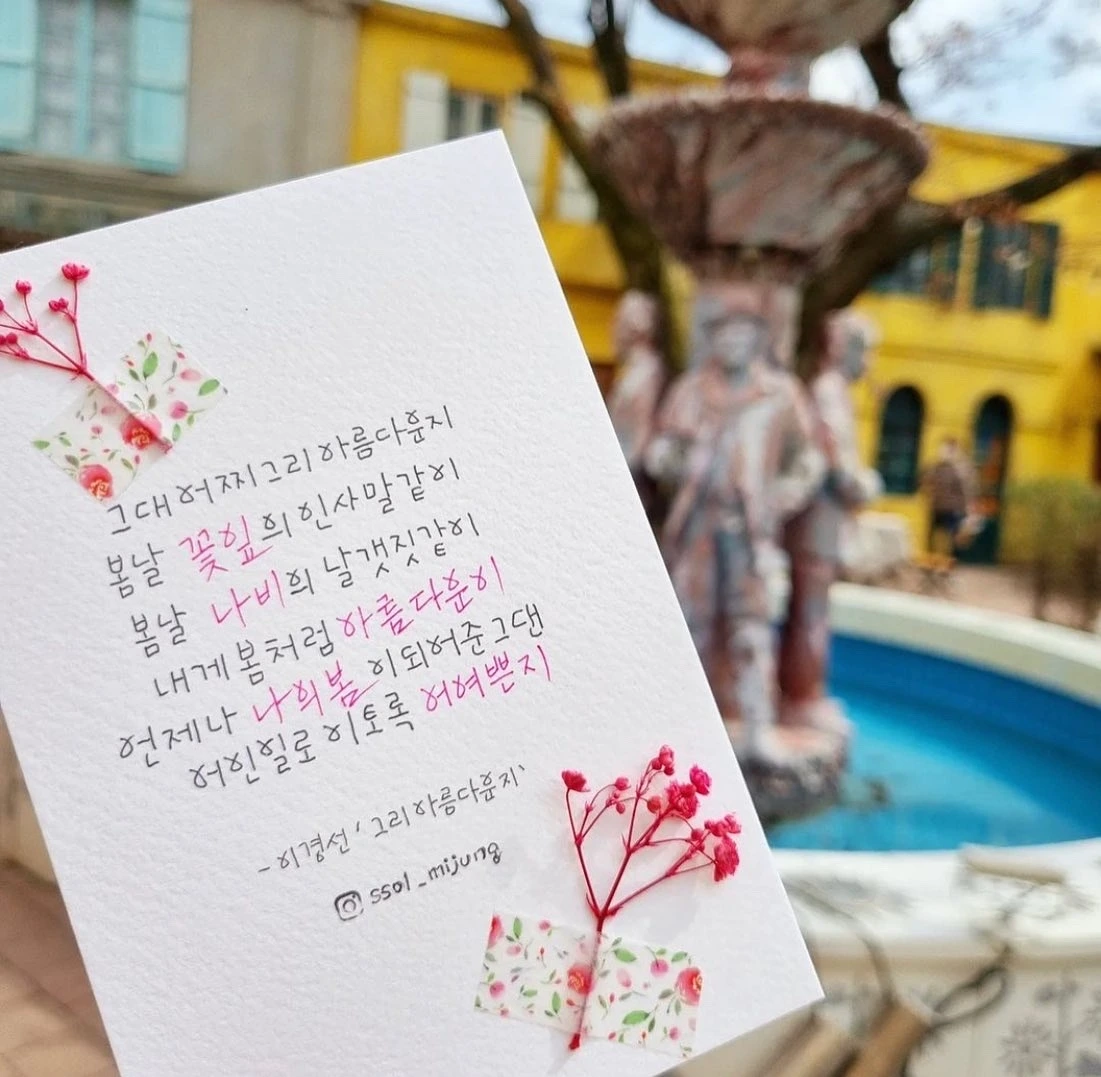 그대 어찌 그리 아름다운지
봄날 꽃잎의 인사말같이
봄날 나비의 날갯짓같이
내게 봄처럼 아름다운이
언제나 나의 봄이 되어준 그댄
어인일로 이토록 어여쁜지
- 이경선 '그리 아름다운지'
ssol_mijung